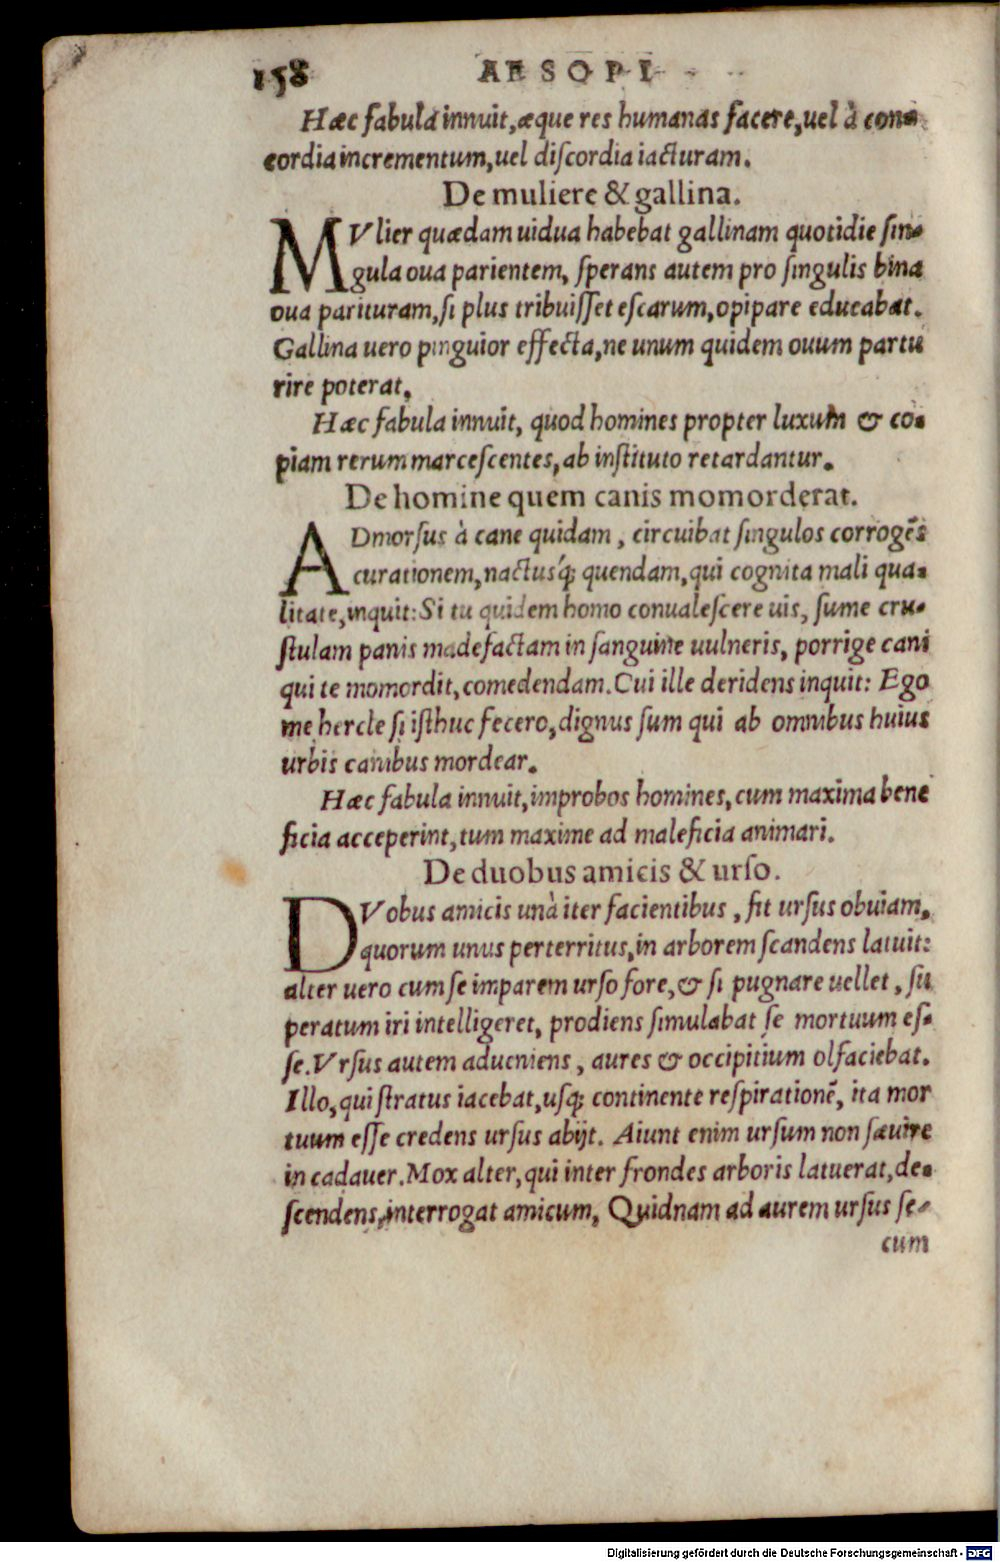 158 AESOPI
Hæc fabula innuit, æque res humanas facere, uel à con-
cordia incrementum, uel discordia iacturam.
De muliere & gallina.
MVlier quædam uidua habebat gallinam quotidie sin-
gula oua parientem, sperans autem pro singulis bina
oua parituram, si plus tribuisset escarum, opipare educabat.
Gallina uero pinguior effecta, ne unum quidem ouum partu
rire poterat.
Hæc fabula innuit, quod homines propter luxum & co-
piam rerum marcescentes, ab instituto retardantur.
De homine quem canis momorderat.
ADmorsus à cane quidam, circuibat singulos corrogẽs
curationem, nactusq́; quendam, qui cognita mali qua-
litate, inquit: Si tu quidem homo conualescere uis, sume cru-
stulam panis madefactam in sanguine uulneris, porrige cani
qui te momordit, comedendam. Cui ille deridens inquit: Ego
me hercle si isthuc fecero, dignus sum qui ab omnibus huius
urbis canibus mordear.
Hæc fabula innuit, improbos homines, cum maxima bene
ficia acceperint, tum maxime ad maleficia animari.
De duobus amicis & urso.
DVobus amicis unà iter facientibus, fit ursus obuiam,
quorum unus perterritus, in arborem scandens latuit:
alter uero cum se imparem urso fore, & si pugnare uellet, su
peratum iri intelligeret, prodiens simulabat se mortuum es-
se. Vrsus autem adueniens, aures & occipitium olfaciebat.
Illo, qui stratus iacebat, usq; continente respirationẽ, ita mor
tuum esse credens ursus abijt. Aiunt enim ursum non sæuire
in cadauer. Mox alter, qui inter frondes arboris latuerat, de-
scendens, interrogat amicum, Quidnam ad aurem ursus se-
cum
Digitalisierung gefördert durch die Deutsche Forschungsgemeinschaft - DFG